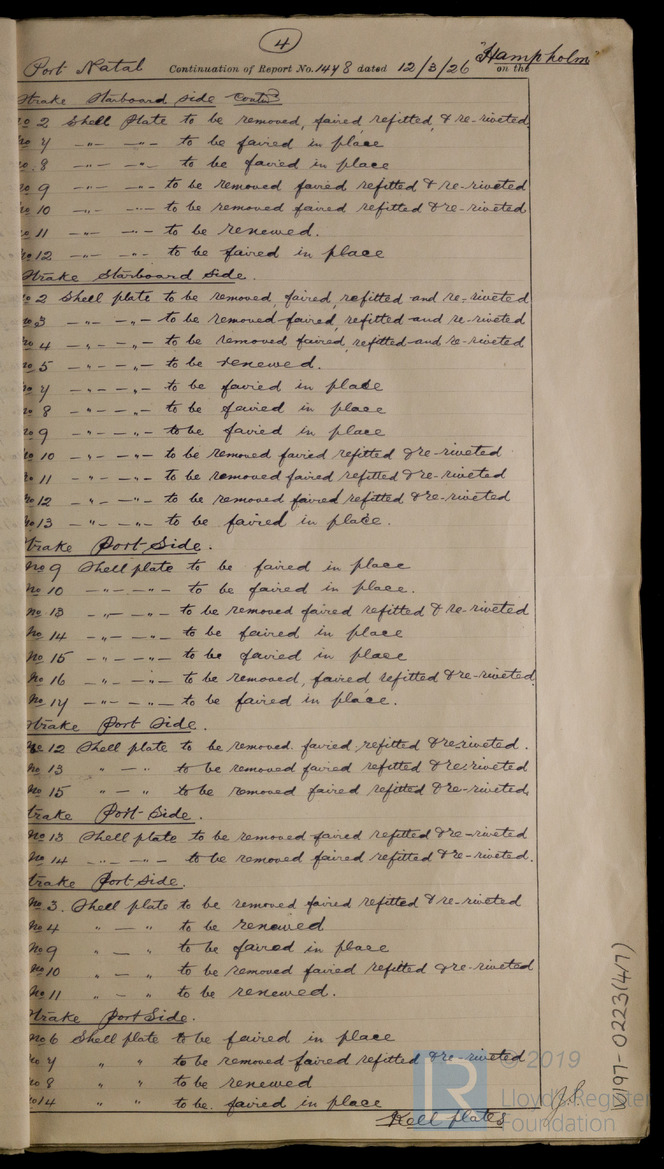 4
Port Natal Continuation of Report No. 1478 dated 12/3/26 "Hampholm" on the
Strake Starboard side Contd
No 2 Shell Plate to be removed, faired refitted, & re-riveted.
No 7 -"- -"- to be faired in place
No 8 -"- -"- to be faired in place
No 9 -"- -"- to be removed faired refitted & re-riveted
No 10 -"- -"- to be removed faired refitted & re-riveted
No 11 -"- -"- to be renewed.
No 12 -"- -"- to be faired in place
Strake Starboard Side.
No 2 Shell plate to be removed, faired, refitted and re-riveted
No 3 -"- -"- to be removed faired, refitted and re-riveted
No 4 -"- -"- to be removed faired, refitted and re-riveted
No 5 -"- -"- to be renewed.
No 7 -"- -"- to be faired in place
No 8 -"- -"- to be faired in place
No 9 -"- -"- to be faired in place
No 10 -"- -"- to be removed faired refitted & re-riveted
No 11 -"- -"- to be removed faired refitted & re-riveted
No 12 -"- -"- to be removed faired refitted & re-riveted
No 13 -"- -"- to be faired in place.
Strake Port Side.
No 9 Shell plate to be faired in place
No 10 -"- -"- to be faired in place.
No 13 -"- -"- to be removed faired refitted & re-riveted
No 14 -"- -"- to be faired in place
No 15 -"- -"- to be faired in place
No 16 -"- -"- to be removed, faired refitted & re-riveted.
No 17 -"- -"- to be faired in place.
Strake Port Side.
No 12 Shell plate to be removed. faired refitted & re-riveted.
No 13 " - " to be removed faired refitted & re-riveted
No 15 " - " to be removed faired refitted & re-riveted
trake Port Side.
No 13 Shell plate to be removed faired refitted & re-riveted
No 14 -"- -"- to be removed faired refitted & re-riveted.
trake Port Side.
No 3. Shell plate to be removed faired refitted & re-riveted
No 4 " - " to be renewed
No 9 " - " to be faired in place
No 10 " - " to be removed faired refitted & re-riveted
No 11 " - " to be renewed.
Strake Port Side.
No 6 Shell plate to be faired in place
No 7 " " to be removed faired refitted & re-riveted
No 8 " " to be renewed
No 14 " " to be faired in place
Keel plates
W197-0223(4/7)
© 2019
Lloyd's Register
Foundation